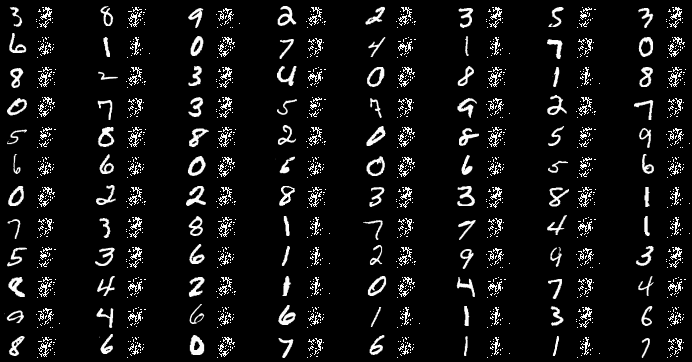 3 8 9 2 2 3 5 3
6 1 0 7 4 1 7 0
8 2 3 4 0 8 1 8
0 7 3 5 7 9 2 7
5 8 8 2 0 8 5 9
6 6 0 6 0 6 5 6
0 2 2 8 3 3 8 1
7 3 8 1 7 7 4 1
5 3 6 1 2 9 9 3
8 4 2 1 0 4 7 4
9 4 6 6 1 1 3 6
8 6 0 7 6 1 1 7